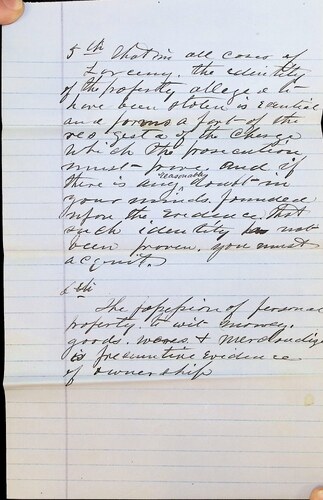 5th That in all cases of
Larceny, the identity
of the property alleged to
have been stolen is essential
and forms a part of the
res gesta of the Charge
which the prosecution
must prove. And if
there is any reasonable doubt in
your minds, founded
upon the evidence, that
such identity has not
been proven, you must
acquit.
6th
The possession of personal
property, to wit money,
goods, wares & merchandise
is presumptive evidence
of ownership